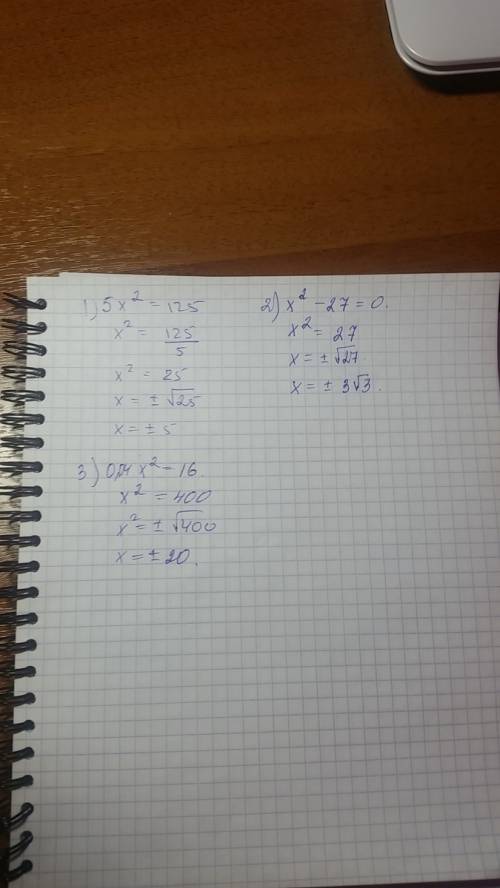 1) 5x² = 125
x² = 125/5
x² = 25
x = ± √25
x = ± 5
2) x² - 27 = 0.
x² = 27
x = ± √27
x = ± 3√3.
3) 0,04 x² = 16
x² = 400
x² = ± √400
x = ± 20.